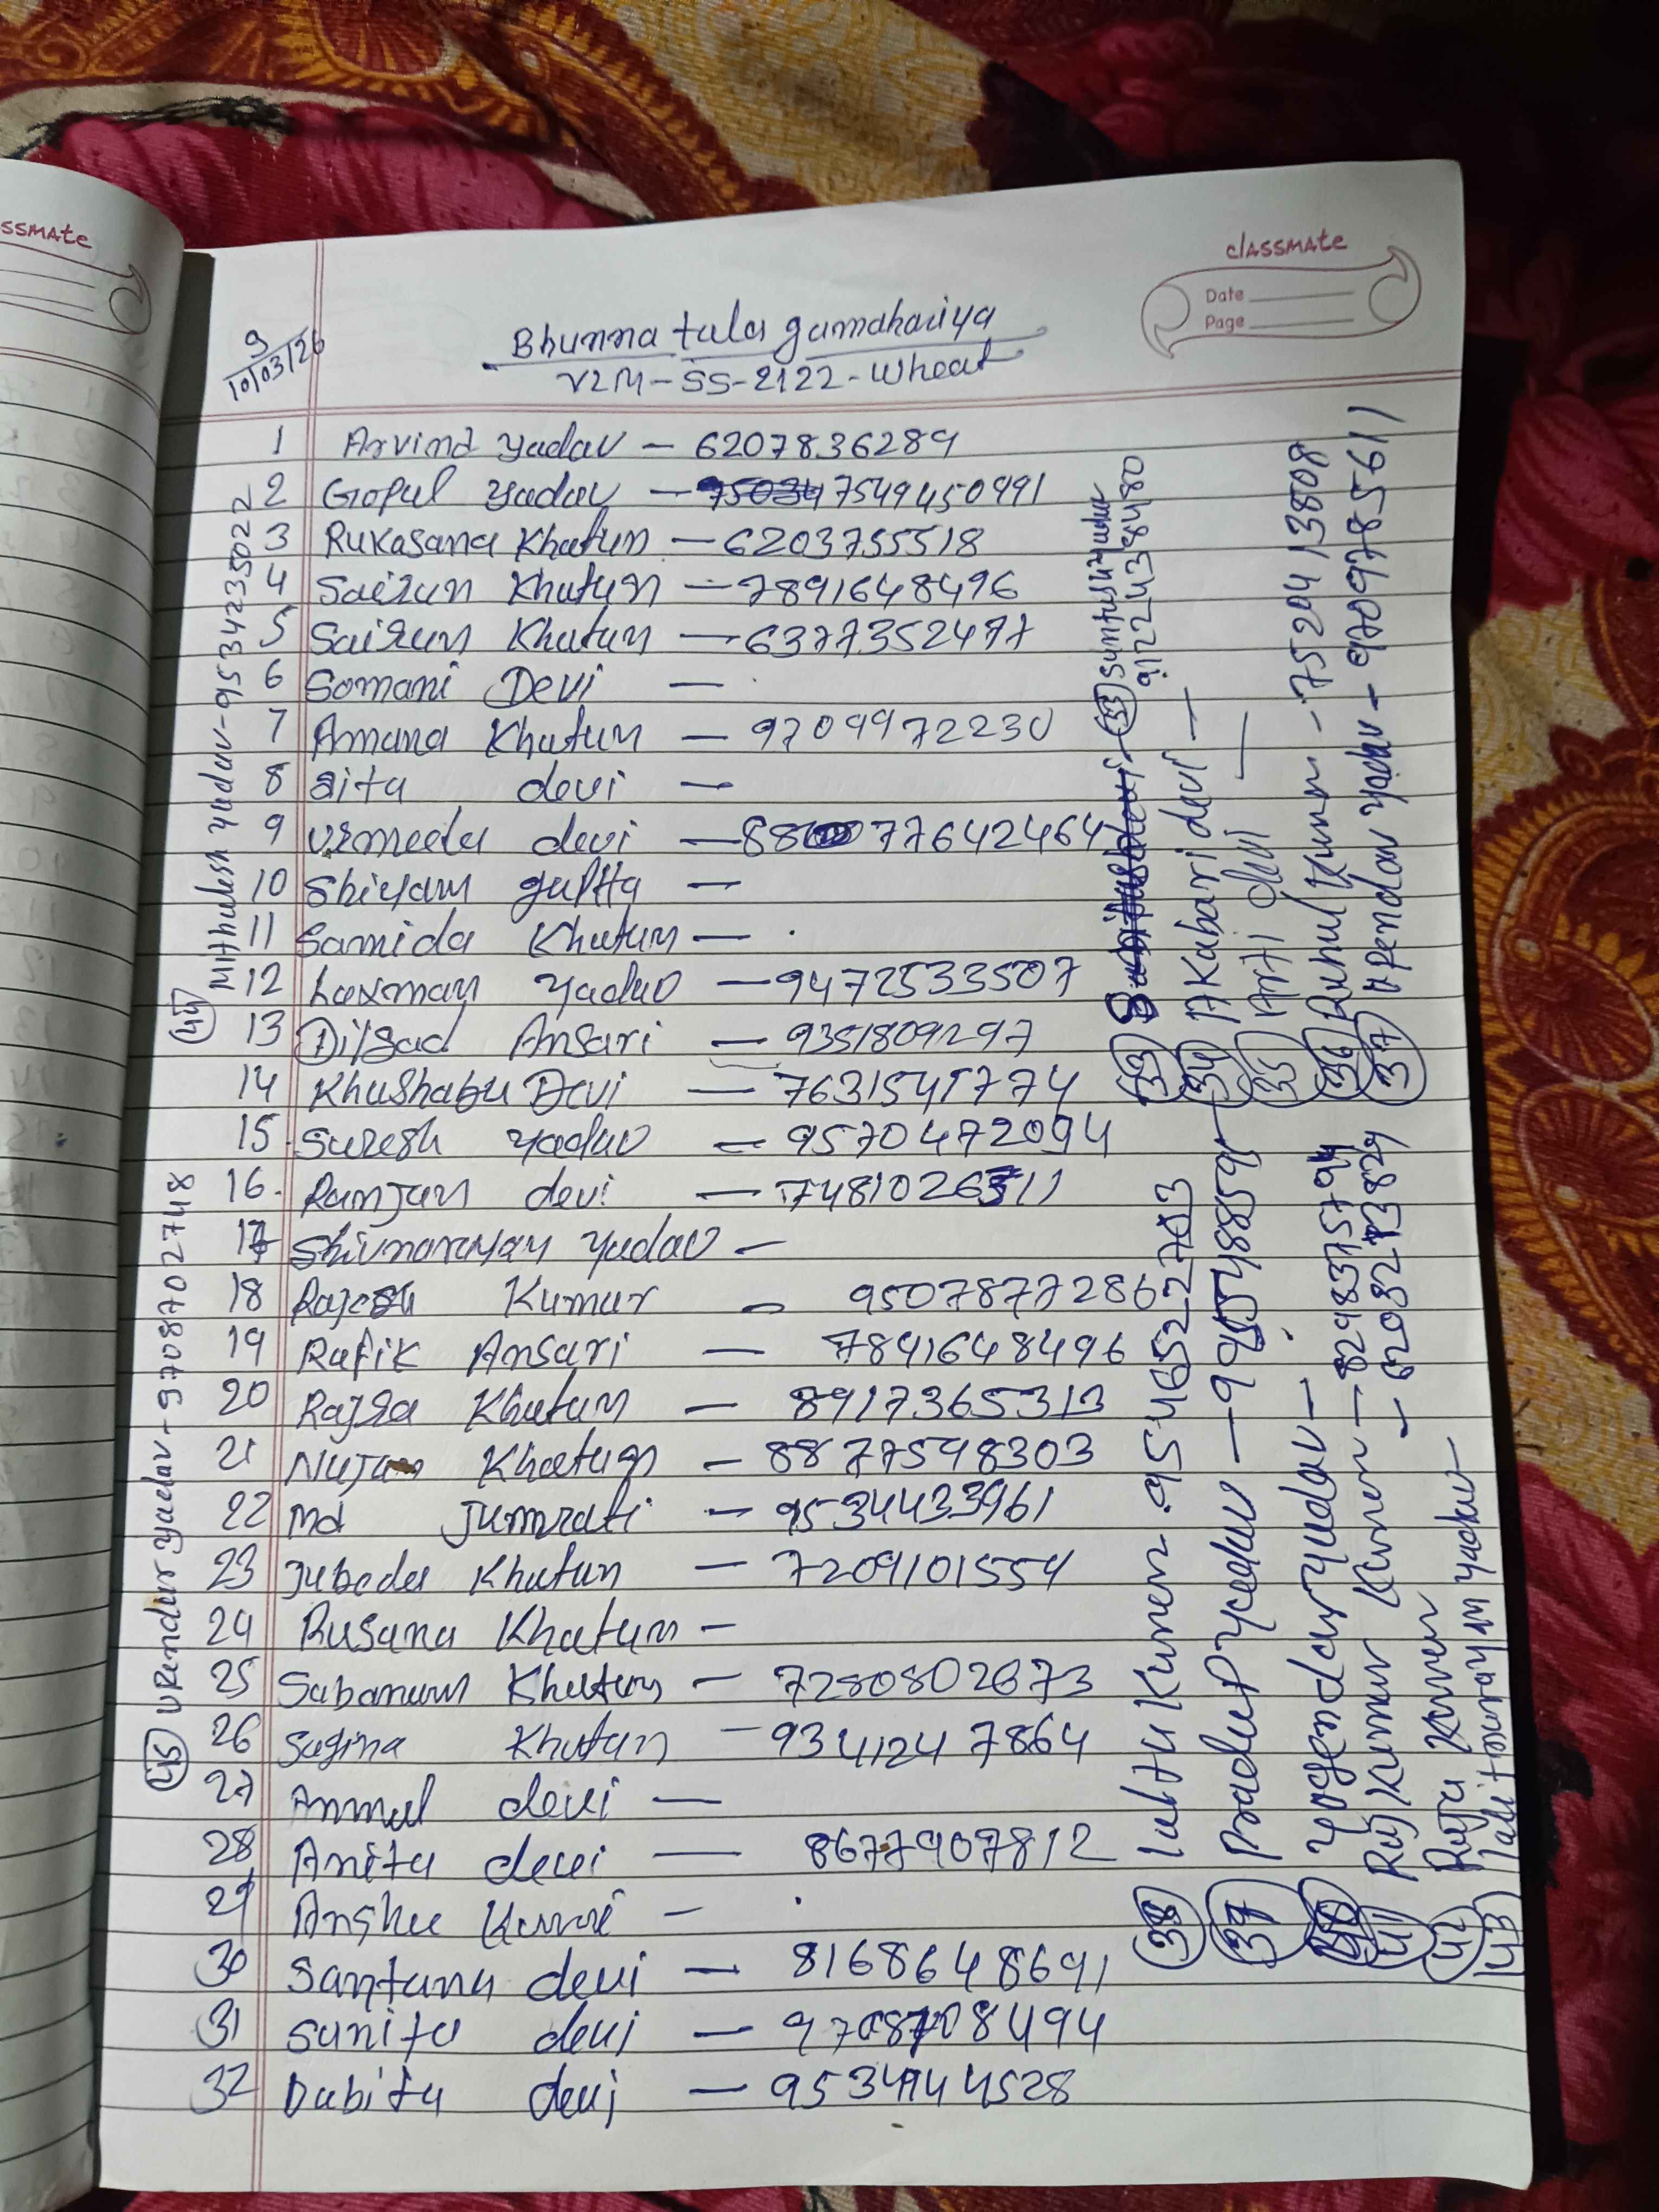 ssmate
classmate
Date
Page
9
10/03/26
Bhumna tula gamahariya
V2M-SS-2122-Wheat
1 Arvind yadav - 6207836289
2 Gopal yadav - 7549450991
3 Rukasana Khatun - 6203755518
4 Sairun Khatun - 7891648496
5 Sairun Khatun - 6377352477
6 Somani Devi -
7 Amana Khatun - 9709972230
8 Sita devi -
9 Urmeela devi - 88 77642464
10 Shiyam gupta -
11 Samida Khatun -
12 Laxman yadav - 9472533507
13 Dilsad Ansari - 9351809297
14 Khushabu Devi - 7631541774
15 Suresh yadav - 9570472094
16 Ranjan devi - 7481026311
17 Shivnarayan yadav -
18 Rajesh Kumar - 9507877286
19 Rafik Ansari - 7841648496
20 Rajya Khatun - 8917365313
21 Nujan Khatun - 8877598303
22 Md Jumrati - 9534433961
23 Jubeda Khatun - 7209101554
24 Rusana Khatun -
25 Sabanum Khatun - 7280802673
26 Sagina Khatun - 9341247864
27 Anmul devi -
28 Anita devi - 8677907812
29 Anshu Kumari -
30 Santana devi - 8168648691
31 Sunita devi - 9708708494
32 Dabita devi - 9534944528
33 Suntush yadav
9122438480
34 Akabari devi -
35 Arti devi -
36 Ruhul Kumar - 7529413808
37 Upendar yadav - 9709785611
38 Laltu Kumar - 9546522703
39 Pradup yadav - 9955488591
40 Yogendar yadav -
41 Raj Kumar Kumar - 8298375794
42 Raju Kumar - 6203273829
43 Lalit narayan yadav -
44 Mithulesh yadav - 9534235022
45 Upendur yadav - 9708702748